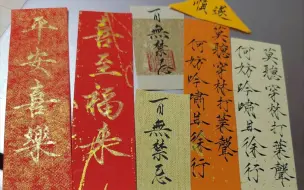 平安喜樂
喜至福来
百無禁忌
百無禁忌
莫聽穿林打葉聲
何妨吟嘯且徐行
莫聽穿林打葉聲
何妨吟嘯且徐行
順遂